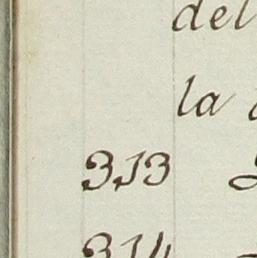 del
la
313
314